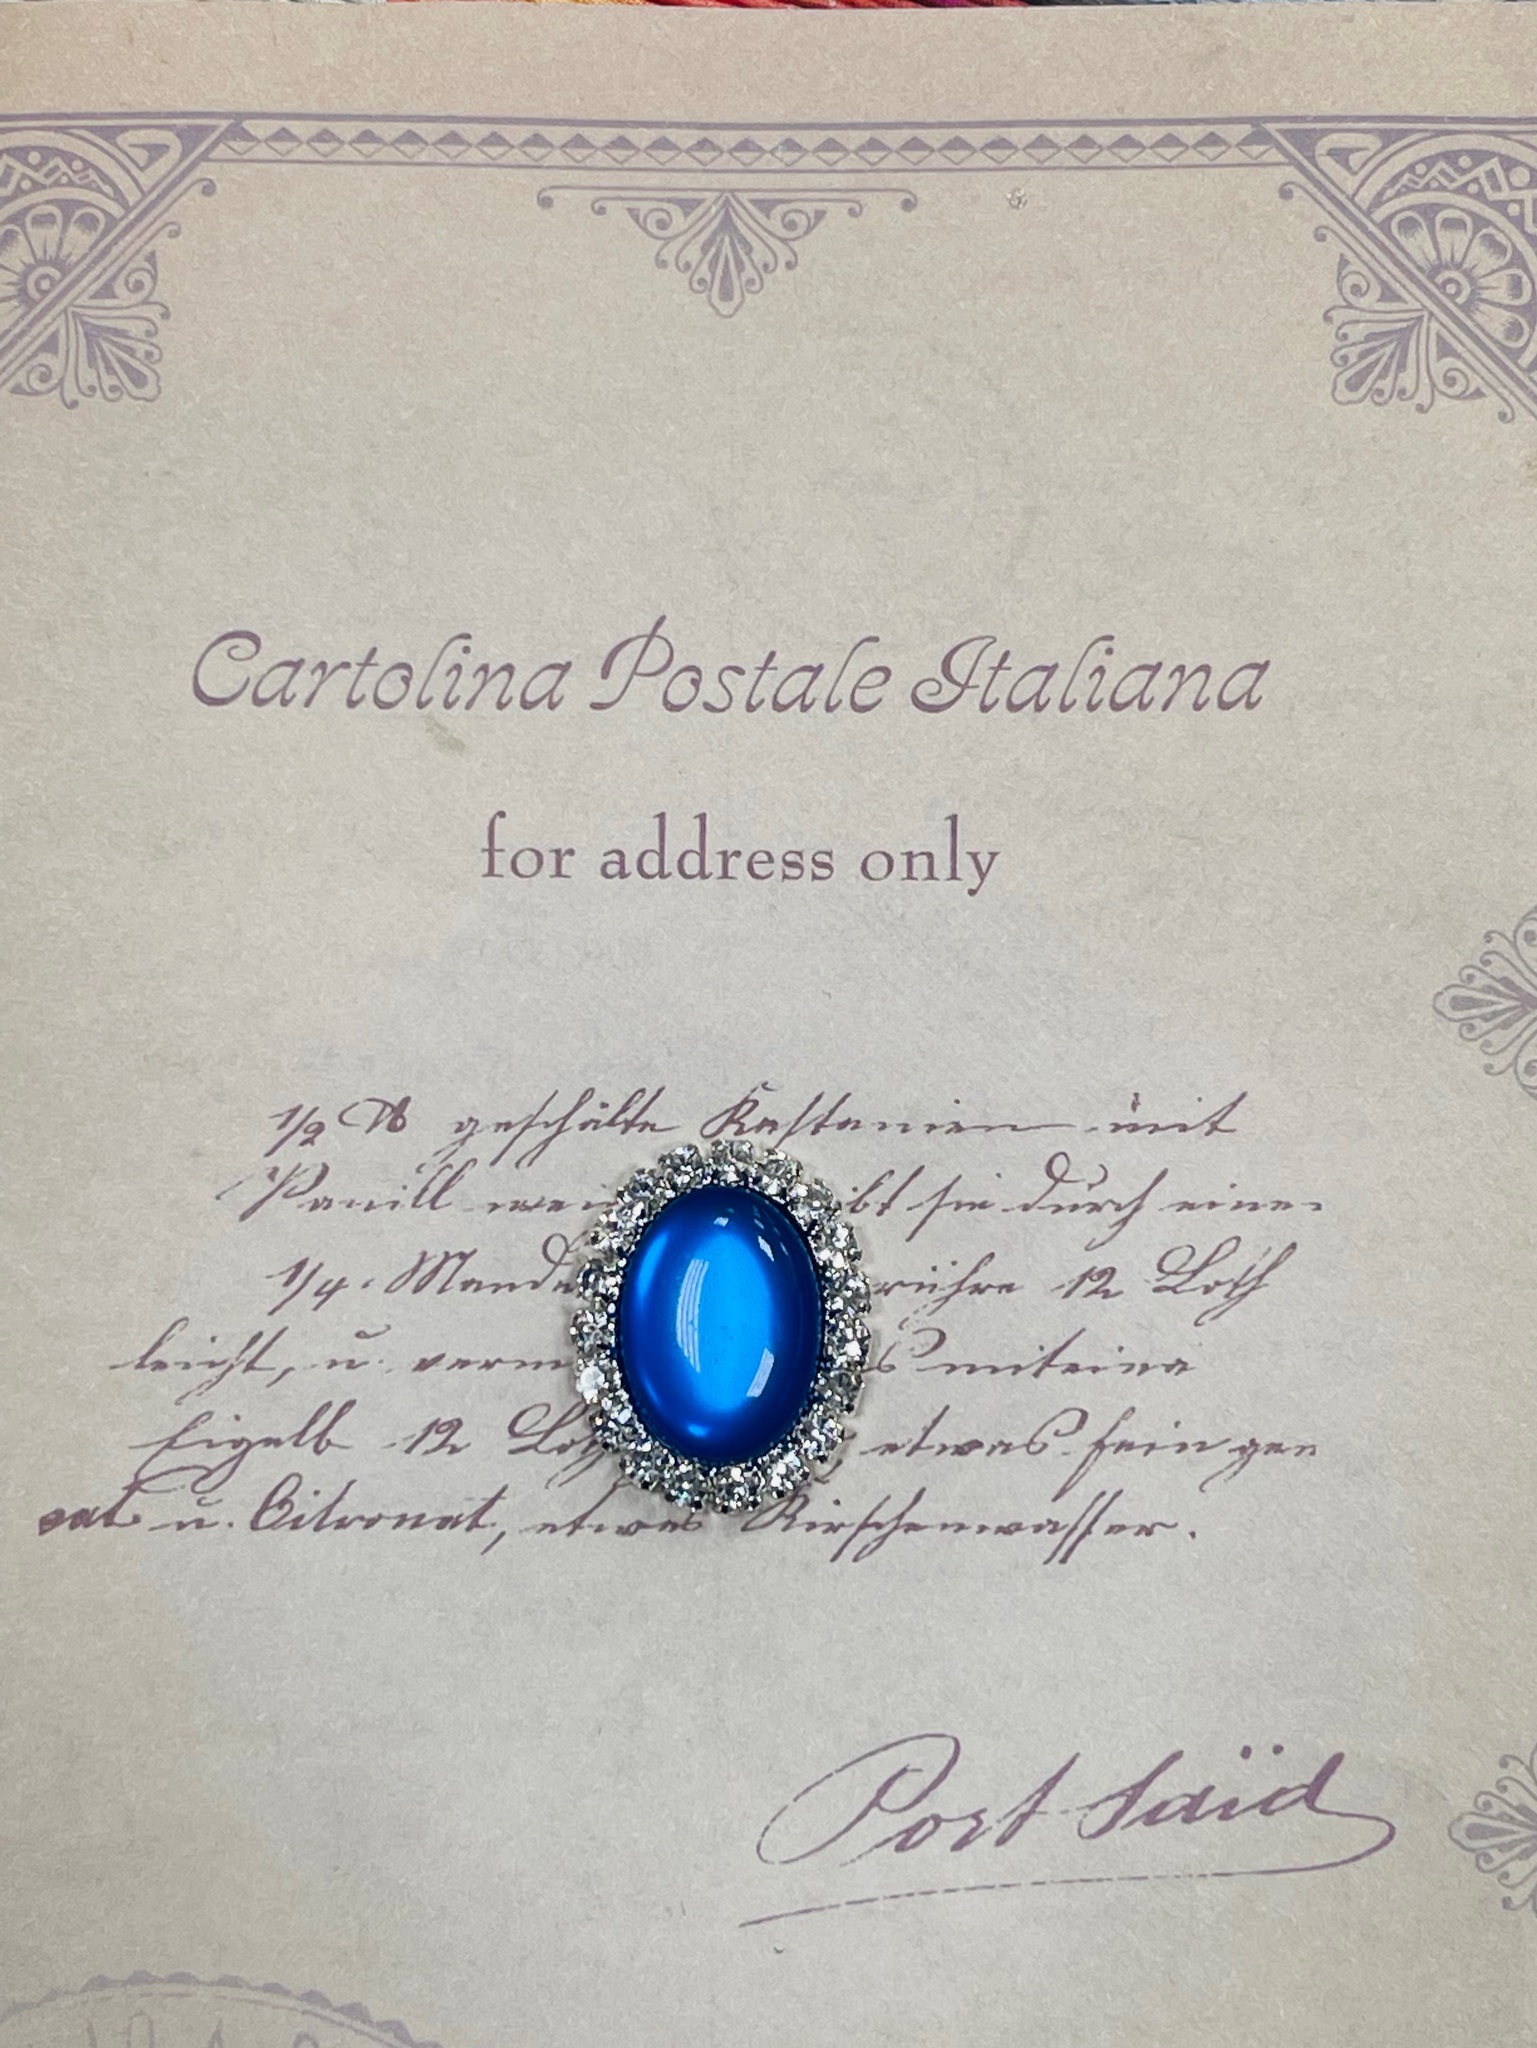 Cartolina Postale Italiana
for address only
1/2 ℔ geschälte Kastanien mit
Vanill sie durch eine
1/4. rühre 12 Loth
leicht, u.
Eigelb 12 etwas fein
u. Citronat, etwas Kirschenwasser.
Port Saïd